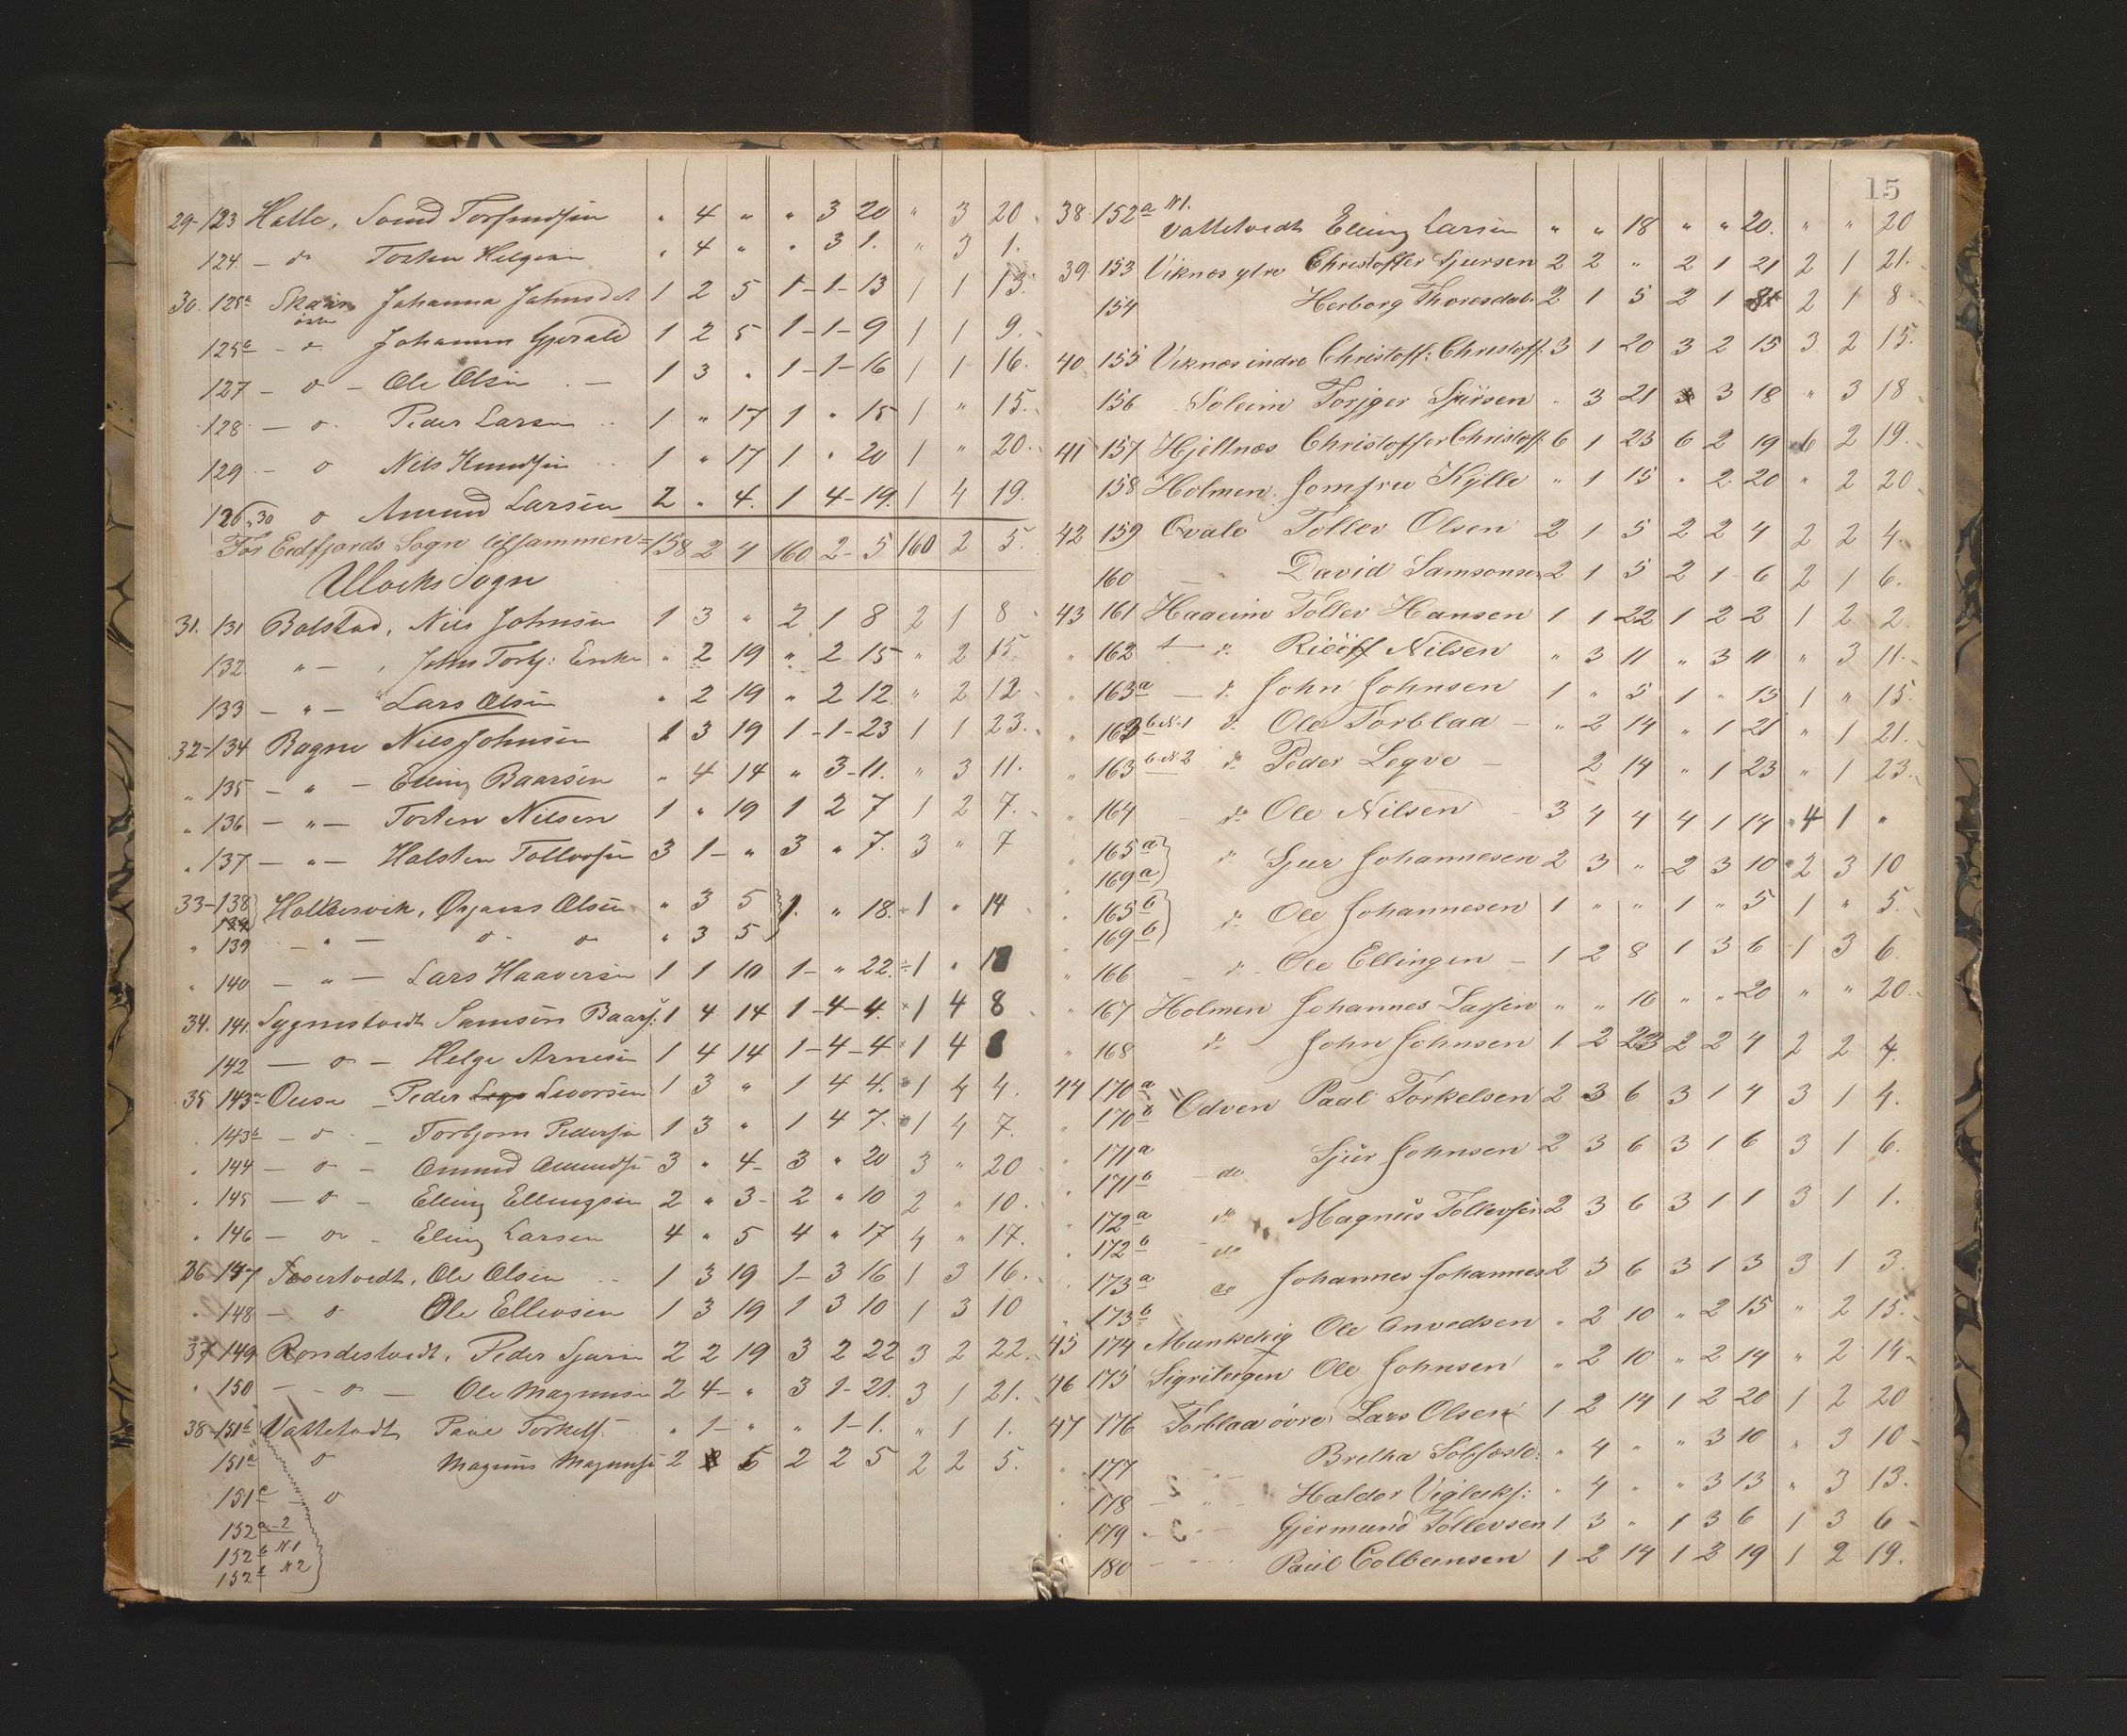 29-123 Halle, Torfindsen " 4 " " 3 20 " 3 20
124 - do Tosten Helgesen " 4 " " 3 1. " 3 1.
30. 125a østre Johanna Johnsdt 1 2 5 1-1-13 1 1 13.
125b - do Johannes 1 2 5 1-1-9 1 1 9.
127 - do - Ole Olsen 1 3 " 1-1-16 1 1 16.
128 - do Peder Larsen 1 " 17 1 " 15 1 " 15.
129 - do Nils Knudsen 1 " 17 1 " 20 1 " 20.
126,30 do Amund Larsen 2 " 4. 1 4-19. 1 4 19.
For Eedfjords Sogn tilsammen = 158 2 4 160 2-5 160 2 5.
Ulviks Sogn
31. 131 Bolstad, Nils Johnsen 1 3 " 2 1 8 2 1 8
132 " - , John Torbj: Enke " 2 19 " 2 15 " 2 15
133 - " - Lars Olsen " 2 19 " 2 12 " 2 12
32-134 Bagne Nils Johnsen 1 3 19 1-1-23 1 1 23.
" 135 - " - Elling Baarsen " 4 14 " 3-11. " 3 11.
" 136 - " - Torsten Nilsen 1 " 19 1 2 7 1 2 7.
" 137 - " - Halsten Tollevsen 3 1- " 3 " 7. 3 " 7
33-138 Hallesvik, Ørjans Olsen " 3 5 1. " 18. 1 " 14
" 139 - " - do do " 3 5
" 140 - " - Lars Haaversen 1 1 10 1- " 22. 1 "
34. 141. Lygnestvedt Samson Baars: 1 4 14 1-4-4. 1 4 8
142 - do - Helge Arnesen 1 4 14 1-4-4 1 4 8
35 143a Ouse - Peder Levorsen 1 3 " 1 4 4. 1 4 4.
143b - do - Torbjørn Pedersen 1 3 " 1 4 7. 1 4 7.
" 144 - do - Amund Amundsen 3 " 4- 3 " 20 3 " 20
" 145 - do - Elling Ellingsen 2 " 3- 2 " 10 2 " 10.
" 146 - do - Elling Larsen 4 " 5 4 " 17 4 " 17.
36-147 Tveitvedt, Ole Olsen 1 3 19 1-3 16 1 3 16.
" 148 - do Ole Ellevsen 1 3 19 1 3 10 1 3 10
37-149 Rondestvedt, Peder Sjursen 2 2 19 3 2 22 3 2 22.
" 150 - - do - Ole Magnusen 2 4- " 3 1-21. 3 1 21.
38-151b Vattetvedt Torkels: " 1- " " 1-1. " 1 1.
151a do Magnus Magnusen 2 5 2 2 5 2 2 5.
151c - do
152a-2
152b N1
152b N2
15
38 152a N1. Vattetvedt Elling Larsen " " 18 " " 20. " " 20
39 153 Viknæs ytre Christoffer Sjursen 2 2 " 2 1 21 2 1 21.
154 Herborg Thoresdat. 2 1 5 2 1 8 2 1 8
40 155 Viknæs indre Christoff: Christoff: 3 1 20 3 2 15 3 2 15.
156 Soleim Torjger Sjursen " 3 21 3 18 " 3 18
41 157 Hjeltnæs Christoffer Christoff: 6 1 23 6 2 19 6 2 19.
158 Holmen Jomfru Kylle " 1 15 " 2 20 " 2 20
42 159 Qvale Tollev Olsen 2 1 5 2 2 4 2 2 4.
160 - David Samsonsen 2 1 5 2 1 6 2 1 6.
43 161 Haaeim Tollev Hansen 1 1 22 1 2 2 1 2 2.
" 162 do Nilsen " 3 11 " 3 11 " 3 11.
" 163a - do John Johnsen 1 " 5 1 " 15 1 " 15.
" 163b N.1 do Ole Torblaa - " 2 14 " 1 21 " 1 21.
" 163b N.2 do Peder Legve - 2 14 " 1 23 " 1 23.
" 164 do Ole Nilsen 3 4 4 4 1 14 4 1 "
" 165a do Sjur Johannesen 2 3 " 2 3 10 2 3 10
169a
" 165b do Ole Johannesen 1 " " 1 " 5 1 " 5.
" 169b
" 166 - do Ole Ellingsen - 1 2 8 1 3 6 1 3 6.
" 167 Holmen Johannes Larsen " " 16 " " 20 " " 20.
" 168 do John Johnsen 1 2 23 2 2 4 2 2 4.
44 170a Odven Paal Torkelsen 2 3 6 3 1 4 3 1 4.
" 170b
" 171a Sjur Johnsen 2 3 6 3 1 6 3 1 6.
" 171b - do
" 172a do Magnus Tollevsen 2 3 6 3 1 1 3 1 1.
" 172b do
" 173a do Johannes Johannes 2 3 6 3 1 3 3 1 3.
" 173b
45 174 Ole Anvedsen " 2 10 " 2 15 " 2 15.
46 175 Ole Johnsen " 2 10 " 2 14 " 2 14.
47 176 Torblaa øvre Lars Olsen 1 2 14 1 2 20 1 2 20
" 177 Bretha " 4 " " 3 10 " 3 10
" 178 - " Haldor Vigleiks: " 4 " " 3 13 " 3 13.
" 179 - " - Gjermund Tollevsen 1 3 " 1 3 6 1 3 6
180 - Paul Colbensen 1 2 14 1 2 19 1 2 19.